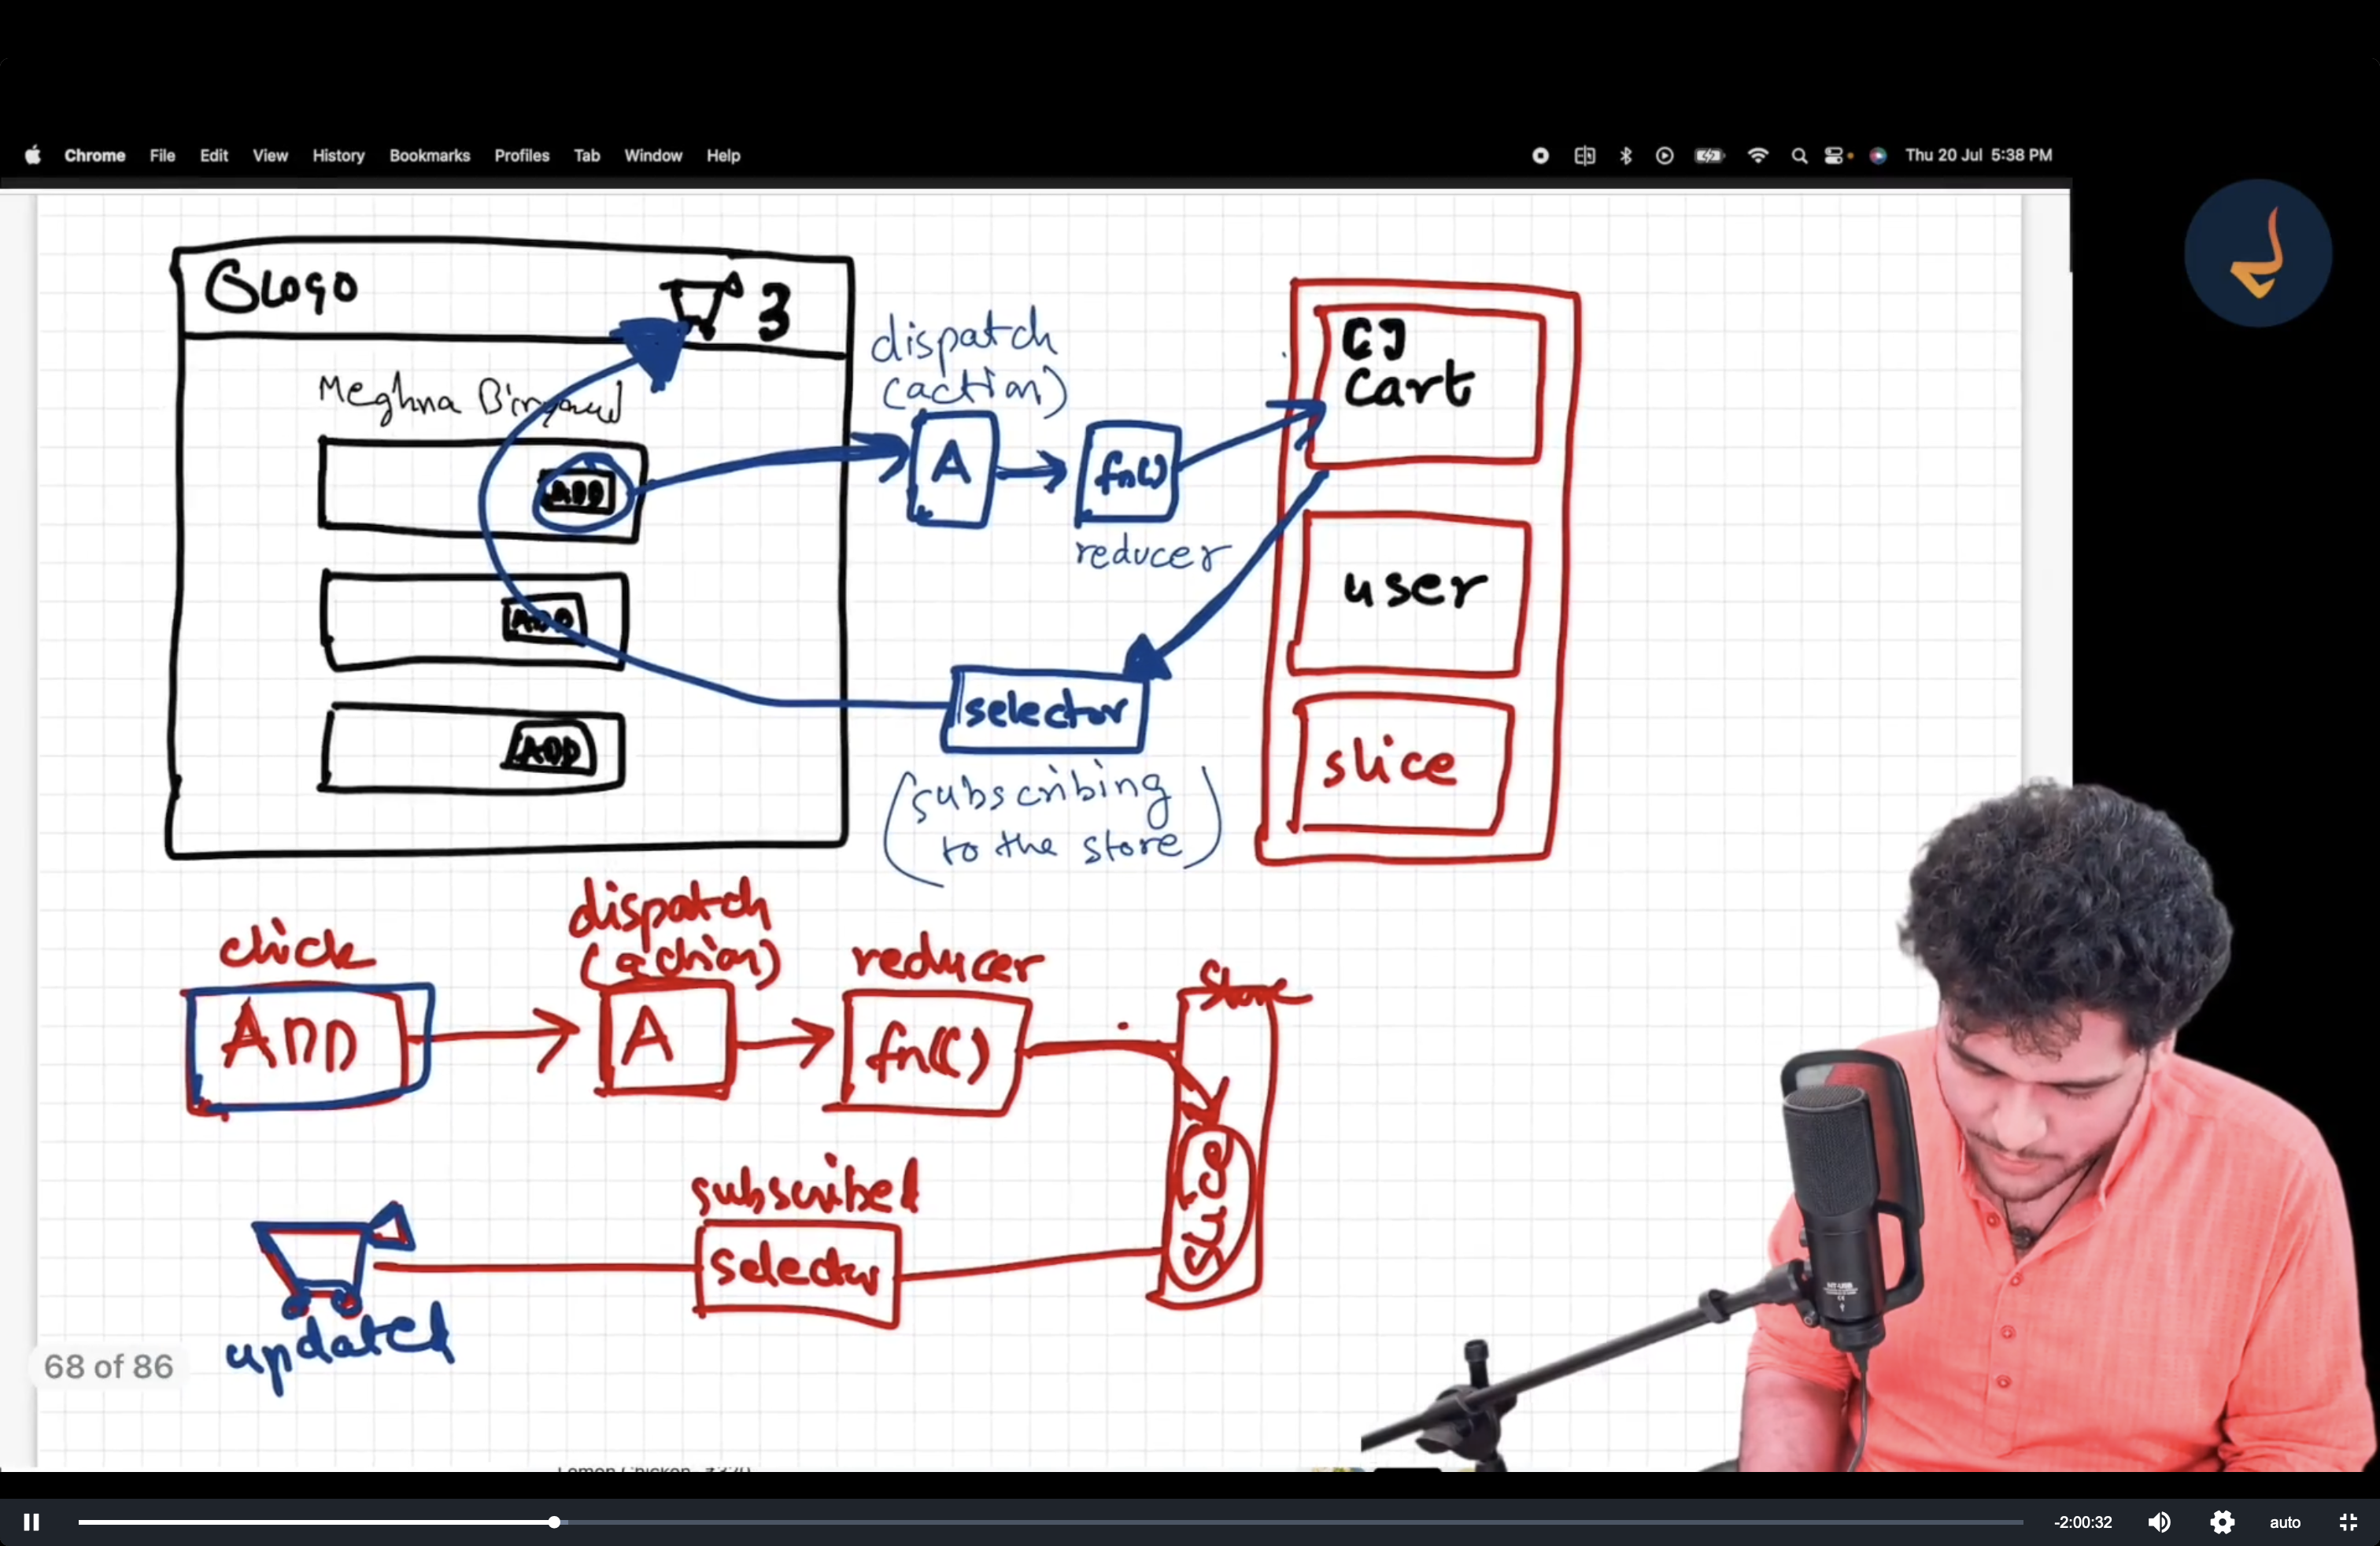 Chrome File Edit View History Bookmarks Profiles Tab Window Help
Thu 20 Jul 5:38 PM
Logo
3
Meghna
ADD
ADD
ADD
dispatch
(action)
A
fn()
reducer
selector
(subscribing
to the store)
[]
Cart
user
slice
click
ADD
dispatch
(action)
A
reducer
fn()
Store
slice
subscribed
selector
updated
68 of 86
Lemon Chicken
-2:00:32
auto